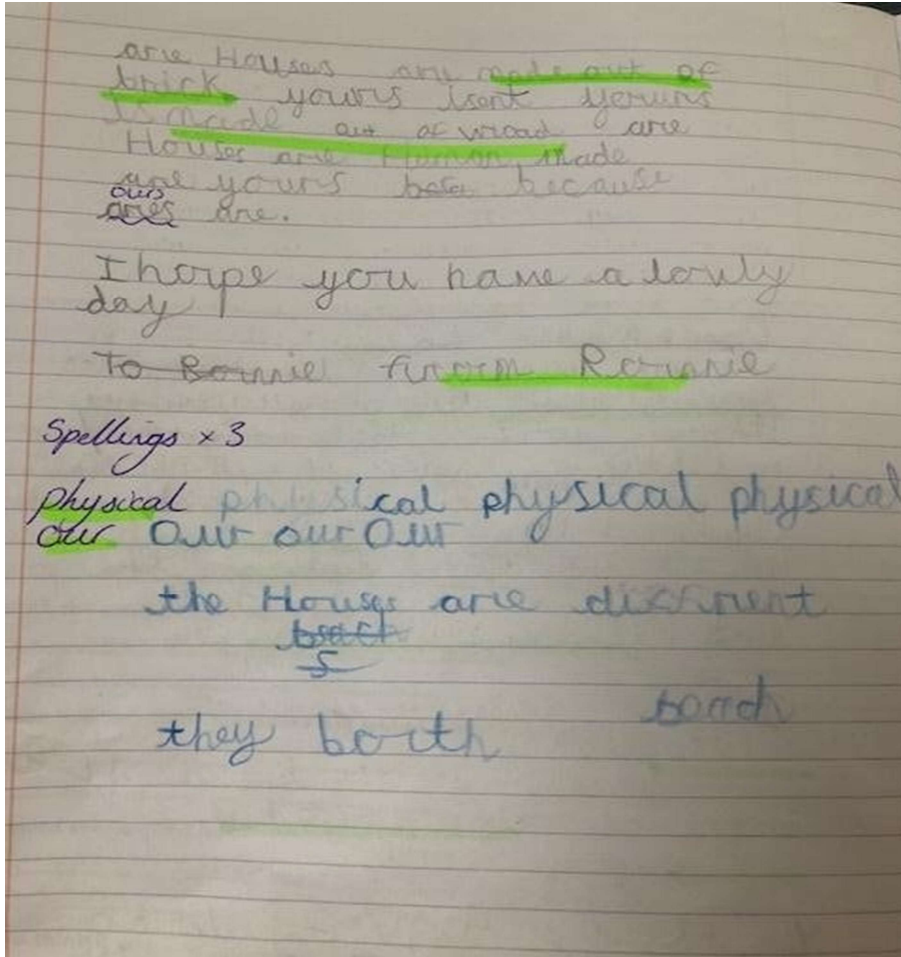 are Houses are made out of
brick yours isent yeruns
is made out of wood are
Houses are Human made
are yours because
ours
aries are.
I horpe you have a lovly
day
To Bonnie from Ronnie
Spellings × 3
physical physical physical physical
our our our our
the Houses are diffrent
they both